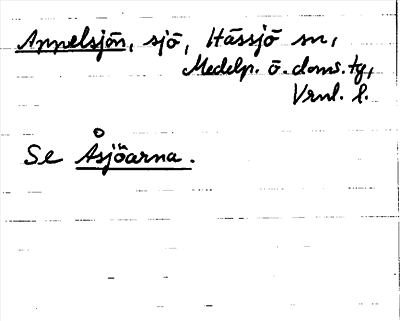 Appelsjön, sjö, Hässjö sn,
Medelp. ö. doms. tg,
Vrnl. l.
Se Åsjöarna.